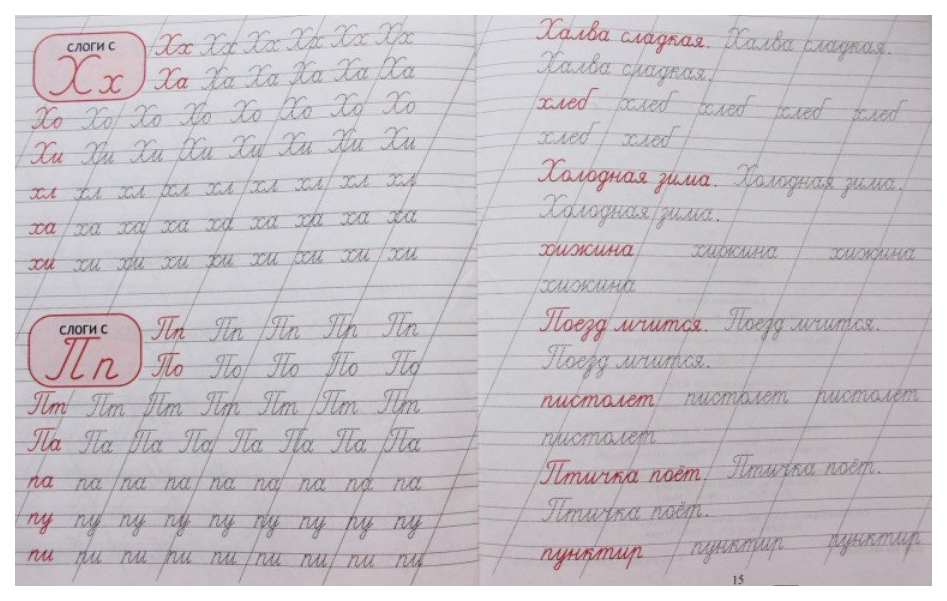 СЛОГИ С
Хх
Хх Хх Хх Хх Хх Хх
Ха Ха Ха Ха Ха Ха
Хо Хо Хо Хо Хо Хо Хо Хо
Хи Хи Хи Хи Хи Хи Хи Хи
хл хл хл хл хл хл хл хл хл
ха ха ха ха ха ха ха ха ха
хи хи хи хи хи хи хи хи хи
СЛОГИ С
Пп
Пп Пп Пп Пп Пп
По По По По По
Пт Пт Пт Пт Пт Пт Пт
Па Па Па Па Па Па Па Па
па па па па па па па па па
пу пу пу пу пу пу пу пу пу
пи пи пи пи пи пи пи пи пи
Халва сладкая. Халва сладкая.
Халва сладкая.
хлеб хлеб хлеб хлеб хлеб
хлеб хлеб
Холодная зима. Холодная зима.
Холодная зима.
хижина хижина хижина
хижина
Поезд мчится. Поезд мчится.
Поезд мчится.
пистолет пистолет пистолет
пистолет
Птичка поёт. Птичка поёт.
Птичка поёт.
пунктир пунктир пунктир
15